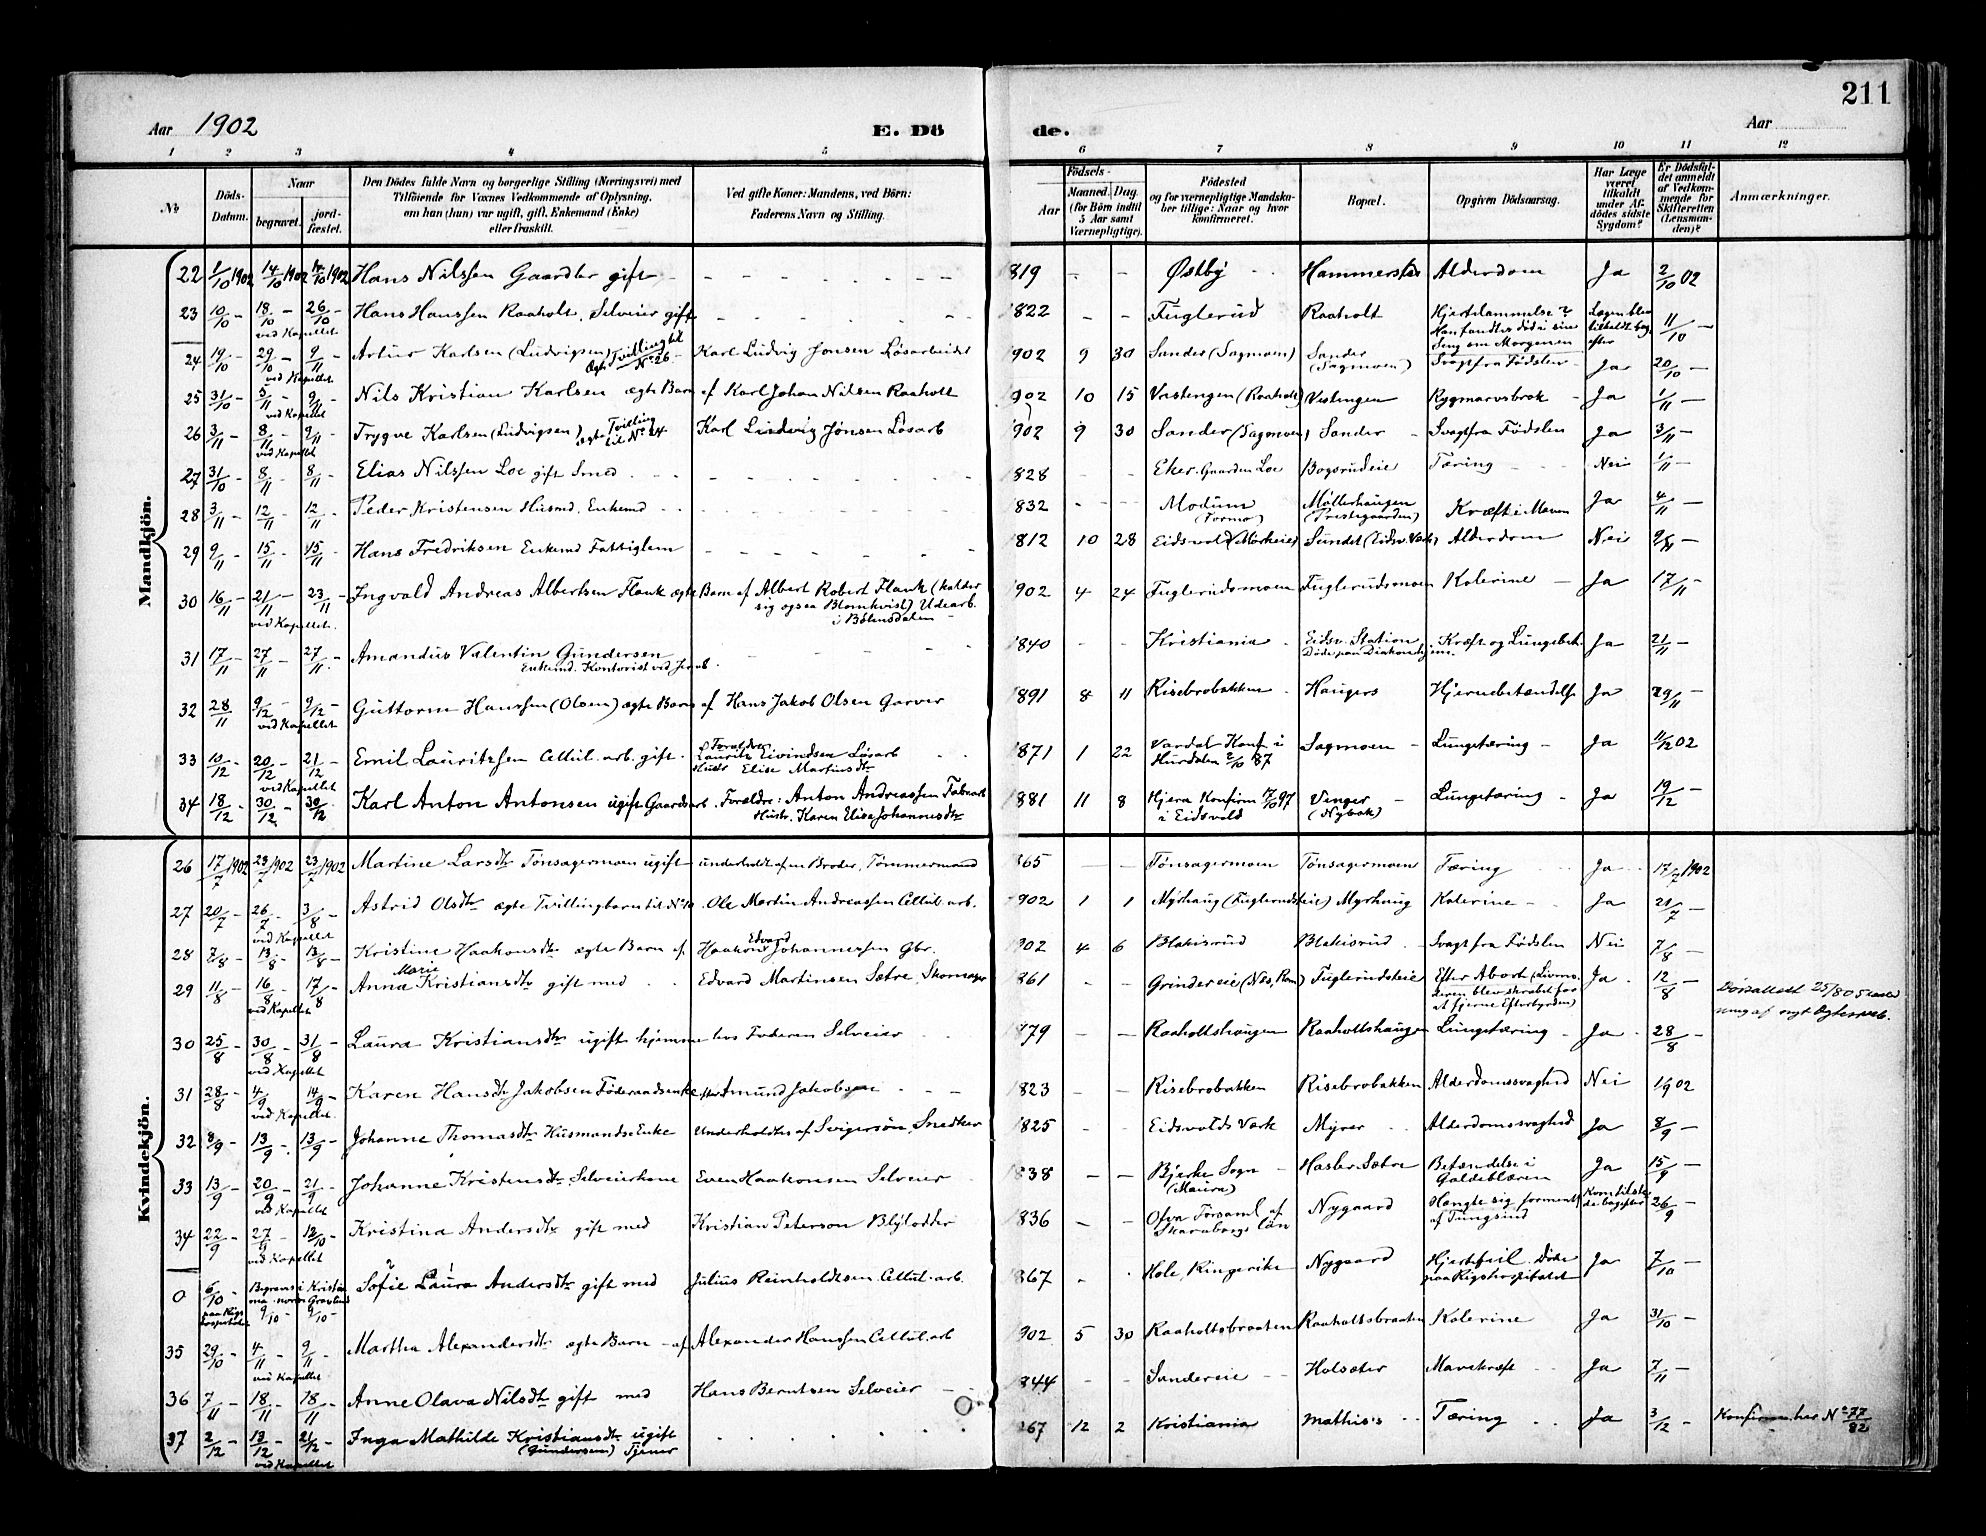 211
Aar 1902 E. Dö de. Aar
1 2 3 4 5 6 7 8 9 10 11 12
№ Döds-Datum. Naar begravet. jord-fæstet. Den Dödes fulde Navn og borgerlige Stilling (Næringsvei) med Tilföiende for Voxnes Vedkommende af Oplysning, om han (hun) var ugift, gift, Enkemand (Enke) eller fraskilt. Ved gifte Koner: Mandens, ved Börn: Faderens Navn og Stilling. Födsels- Aar Maaned. Dag. (for Börn indtil 5 Aar samt Værnepligtige). Födested og for værnepligtige Mandskaber tillige: Naar og hvor konfirmeret. Bopæl. Opgiven Dödsaarsag. Har Læge været tilkaldt under Afdödes sidste Sygdom? Er Dödsfaldet anmeldt af Vedkommende for Skifteretten (Lensmanden)? Anmærkninger.
Mandkjön.
22 1/10 1902 14/10 1902 14/10 1902 Hans Nilssen Gaarder gift - 1819 - - Østby Hammerstad Alderdom Ja 2/10 02
23 10/10 18/10 - 26/10 ved Kapellet Hans Hanssen Raaholt. Selveier gift 1822 - - Fuglerud Raaholt Hjertelammelse? Han fandtes död i sin Seng om Morgenen Lægen blev tilkaldt bagefter 11/10 -
24 19/10 - 29/10 - 9/11 ved Kapellet Artur Karlsen (Ludvigsen) ægte Tvilling til No 26 - Karl Ludvig Jonsen Lösarbeider 1902 9 30 Sander (Sagmoen) Sander (Sagmoen) Svagt fra Födslen Ja 20/10 -
25 31/10 - 5/11 - 9/11 ved Kapellet Nils Kristian Karlsen ægte Barn af Karl Johan Nilsen Raaholt 1902 10 15 Vestengen (Raaholt) Vestengen Rygmarvsbrok - Ja 1/11 -
26 3/11 - 8/11 - 9/11 ved Kapellet Trygve Karlsen (Ludvigsen) ægte Tvilling til No 24 Karl Ludvig Jonsen Lösarb 1902 9 30 Sander (Sagmoen) Sander - Svagt fra Födslen Ja 3/11 -
27 31/10 - 8/11 - 8/11 - Elias Nilssen Loe gift Smed 1828 - - Eker. Gaarden Loe Bogsrudeie Tæring - Nei 1/11 -
28 3/11 - 12/11 - 12/11 - Peder Kristensen Husmd. Enkemd 1832 - - Modum (Formo) Möllerhaugen (Prestegaarden) Kræft i Maven Ja 4/11 -
29 9/11 - 15/11 - 15/11 - Hans Fredriksen Enkemd Fattiglem 1812 10 28 Eidsvold (Mörkeie) Sundet (Eidsv. Værk) Alderdom Nei -
30 16/11 - 21/11 - 23/11 - ved Kapellet. Ingvald Andreas Albertsen Flauk ægte Barn af Albert Robert Flauk (kalder sig ogsaa Blomkvist) Udearb. i Bölensdalen 1902 4 24 Fuglerudsmoen Fuglerudsmoen Kolerine - Ja 17/11 -
31 17/11 - 27/11 - 27/11 - Amandus Valentin Gundersen Enkemd. Kontorist ved Jernb. 1840 - - Kristiania - Eidsv. Station Döde paa Diakonhjem. Kræft og Lungebet. Ja 21/11 -
32 28/11 - 9/12 - 9/12 - ved Kapellet Guttorm Hanssen (Olsen) ægte Barn af Hans Jakob Olsen Garver 1891 8 11 Risebrobakken - Haugers Hjernebetændelse Ja 29/11 -
33 10/12 - 20/12 - 21/12 - ved Kapellet Emil Lauritzsen Cellul. arb. gift - Forældre Lauritz Eivindsen Lösarb Hustr Elise Martinsdtr 1871 1 22 Vardal Konf i Hurdalen 2/10 87 Sagmoen - Lungetæring - Ja 11/12 02
34 18/12 - 30/12 - 30/12 Karl Anton Antonsen ugift Gaardsarb. Forældre: Anton Andreassen Fabarb Hustr. Karen Elise Johannesdtr 1881 11 8 Hjera Konfirm 7/10 97 i Eidsvold Venger (Nybak) Lungetæring - Ja 19/12 -
Kvindekjön.
26 17/7 1902 23/7 1902 23/7 1902 Martine Larsdtr Tönsagermoen ugift underholdt af en Broder, Tömmermand 1865 - - Tönsagermoen Tönsagermoen Tæring Ja 17/7 1902
27 20/7 - 26/7 - 3/8 - ved Kapellet Astrid Olsdtr ægte Tvillingbarn til No 10. Ole Martin Andreassen Cellul. arb. 1902 1 1 Myrhaug (Fuglerudseie) Myrhaug Kolerine - Ja 21/7 -
28 7/8 - 13/8 - 13/8 - Kristine Haakonsdtr ægte Barn af. Haakon Edvard Johannessen Gbr. 1902 4 6 Blakisrud Blakisrud - Svagt fra Födslen Nei 7/8 -
29 11/8 - 16/8 - 17/8 ved Kapellet Anna Marie Kristiansdtr gift med Edvard Martinsen Sætre, Skomager 1861 - - Grindereie (Nes, Rom) Fuglerudseie Efter Abort (Livmoderen blev skrabet for at fjerne Efterbyrden) Ja 12/8 - Dödsattest 25/8 05
30 25/8 - 30/8 - 31/8 ved Kapellet Laura Kristiansdtr ugift hjemme hos Faderen Selveier 1879 - - Raaholtshaugen Raaholtshaugen Lungetæring - Ja 28/8 -
31 28/8 - 4/9 - 14/9 - ved Kapellet. Karen Hansdtr Jakobsen Föderaadsenke efter Amund Jakobsen 1823 - - Risebrobakken Risebrobakken Alderdomssvaghed Nei 1902
32 8/9 - 13/9 - 13/9 - Johanne Thomasdtr Husmands Enke Underholdtes af Svigersön, Snedker 1825 - - Eidsvolds Værk Myrer Alderdomssvaghed Ja 8/9 -
33 13/9 - 20/9 - 21/9 - ved Kapellet Johanne Kristensdtr. Selveierkone Even Haakonsen Selveier 1838 - - Bjerke Sogn (Maura) Hasler-Sætre Betændelse i Galdeblæren Ja 15/9 -
34 22/9 - 27/9 - 12/10 - ved Kapellet Kristina Andersdtr gift med Kristian Peterson Blylodder 1836 - - Ofva Församl. af Skaraborgs län Nygaard Hængte sig forment. af Tungsind 26/9 -
0 6/10 - paa Rigshospitalet Begravet i Kristiania 9/10 - 9/10 - Sofie Laura Andersdtr gift med Julius Reinholdtsen Cellul. arb. 1867 - Hole, Ringerike Nygaard Hjertefeil. Döde paa Rigshospitalet Ja 7/10 -
35 29/10 - 4/11 - 9/11 - ved Kapellet Martha Alexandersdtr ægte Barn - af Alexander Hanssen Cellul. arb 1902 5 30 Raaholtsbraaten Raaholtsbraaten Kolerine Ja 31/10 -
36 7/11 - 18/11 - 18/11 Anne Olava Nilsdtr gift med Hans Berntsen Selveier 1844 - - Sandereie - Holsæter Mavekræft Ja 7/11 -
37 2/12 - 13/12 - 21/12 - ved Kapellet Inga Mathilde Kristiansdtr ugift (Gundersen) Tjener 1867 12 2 Kristiania Mathises Tæring Ja 3/12 - Konfirm. her No 77/82